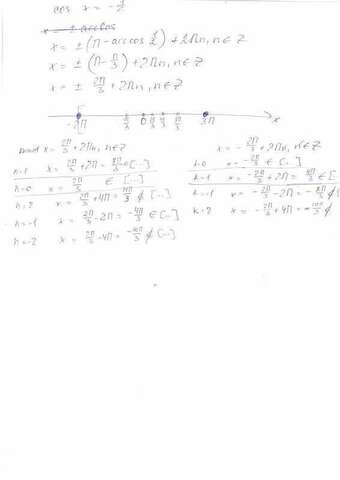 cos x = -1/2
x = ± arccos
x = ± (π - arccos 1/2) + 2πn, n ∈ Z
x = ± (π - π/3) + 2πn, n ∈ Z
x = ± 2π/3 + 2πn, n ∈ Z
-2π 0 3π x
x = 2π/3 + 2πn, n ∈ Z
n=1 x = 2π/3 + 2π = 8π/3 ∈ [...]
n=0 x = 2π/3 ∈ [...]
n=2 x = 2π/3 + 4π = 14π/3 ∉ [...]
n=-1 x = 2π/3 - 2π = -4π/3 ∈ [...]
n=-2 x = 2π/3 - 4π = -10π/3 ∉ [...]
x = -2π/3 + 2πn, n ∈ Z
n=0 x = -2π/3 ∈ [...]
n=1 x = -2π/3 + 2π = 4π/3 ∈ [...
n=-1 x = -2π/3 - 2π = -8π/3 ∉
n=2 x = -2π/3 + 4π =